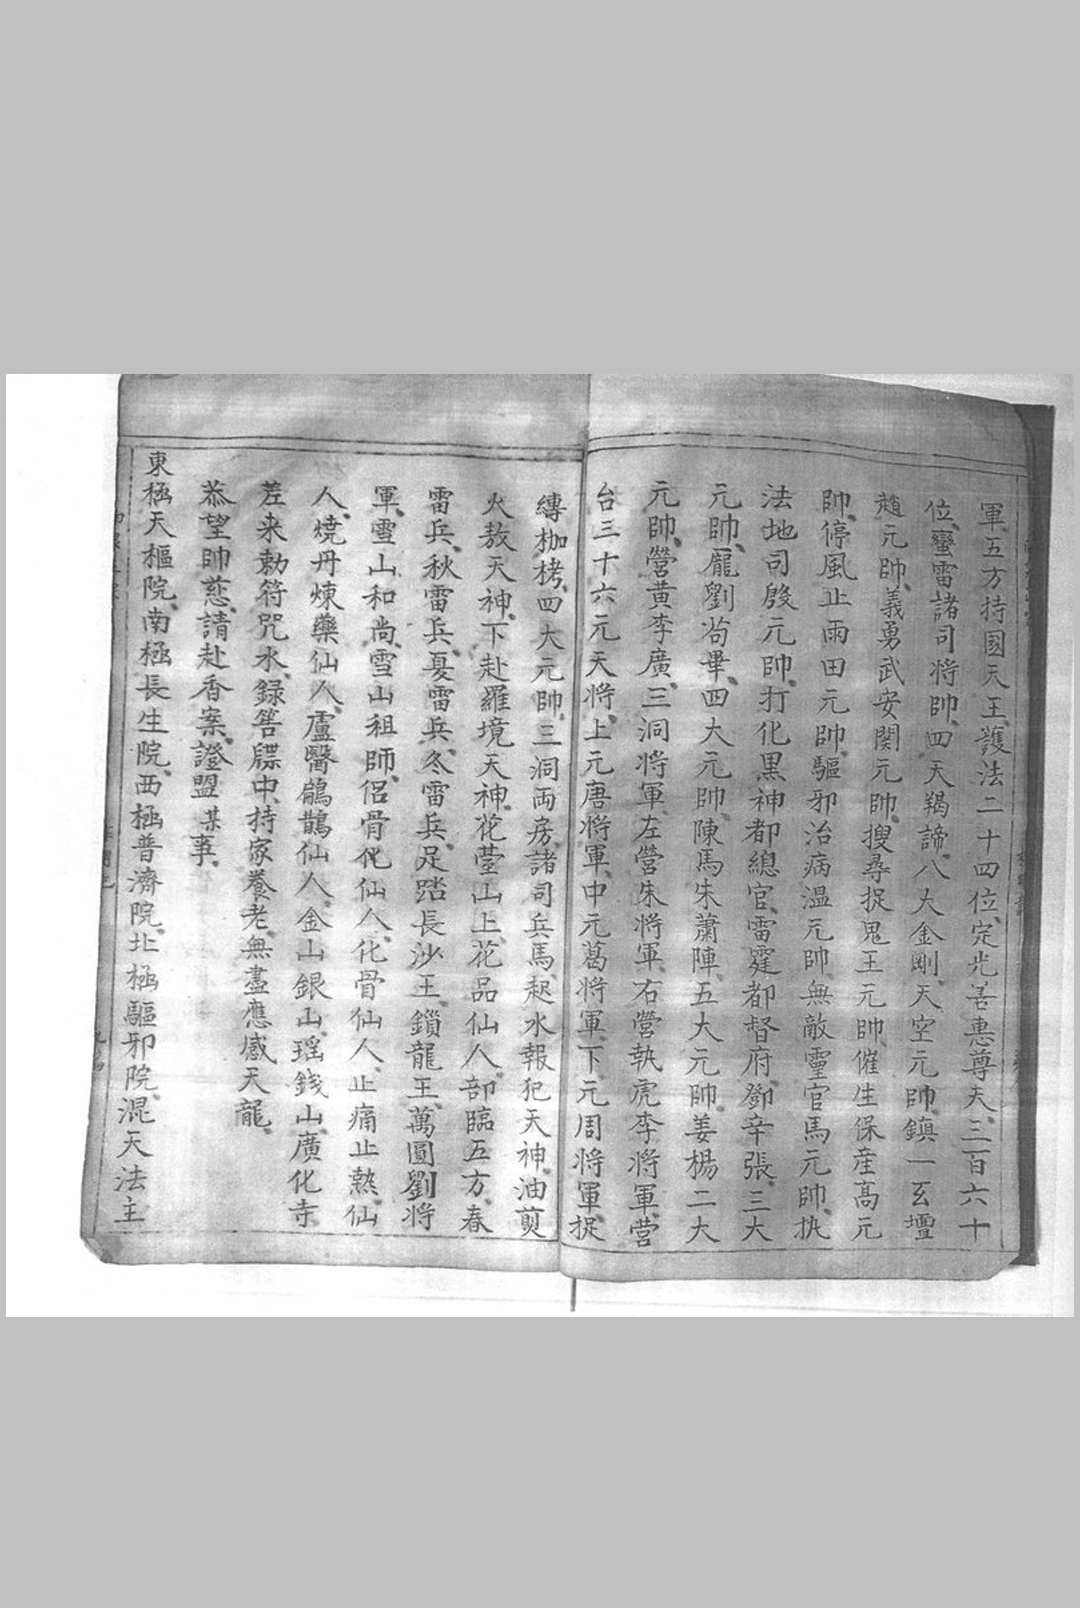 軍、五方持國天王、護法二十四位、定光善惠尊天、三百六十
位、蠻雷諸司将帥、四天羯諦、八大金剛、天空元帥、鎮一玄壇
趙元帥、義勇武安関元帥、搜尋捉鬼王元帥、催生保産髙元
帥、停風止雨田元帥、驅邪治病溫元帥、無敵靈官馬元帥、执
法地司殷元帥、打化黒神都總官、雷霆都督府、鄧辛張、三大
元帥、龐劉苟畢、四大元帥、陳馬朱蕭陣、五大元帥、姜楊二大
元帥、營黄李廣、三洞将軍、左營朱将軍、右營執虎李将軍、营
台三十六元天将、上元唐将軍、中元葛将軍、下元周将軍、捉
縳枷栲、四大元帥、三洞両房、諸司兵馬、起水報犯天神、油煎
火敖天神、下赴羅境天神、花薹山上、花品仙人、部臨五方、春
雷兵、秋雷兵、夏雷兵、冬雷兵、足踏長沙王、鎖龍王、萬圓劉将
軍、雪山和尚、雪山祖師、侶骨化仙人、化骨仙人、止痛止熱、仙
人、燒丹煉藥仙人、盧醫鶣鵲仙人、金山銀山、瑶錢山、廣化寺
差来勅符咒水、録筶牒中、持家養老、無盡應感天龍、
恭望帥慈、請赴香案、證盟某事、
東極天樞院、南極長生院、西極普濟院、北極驅邪院、混天法主